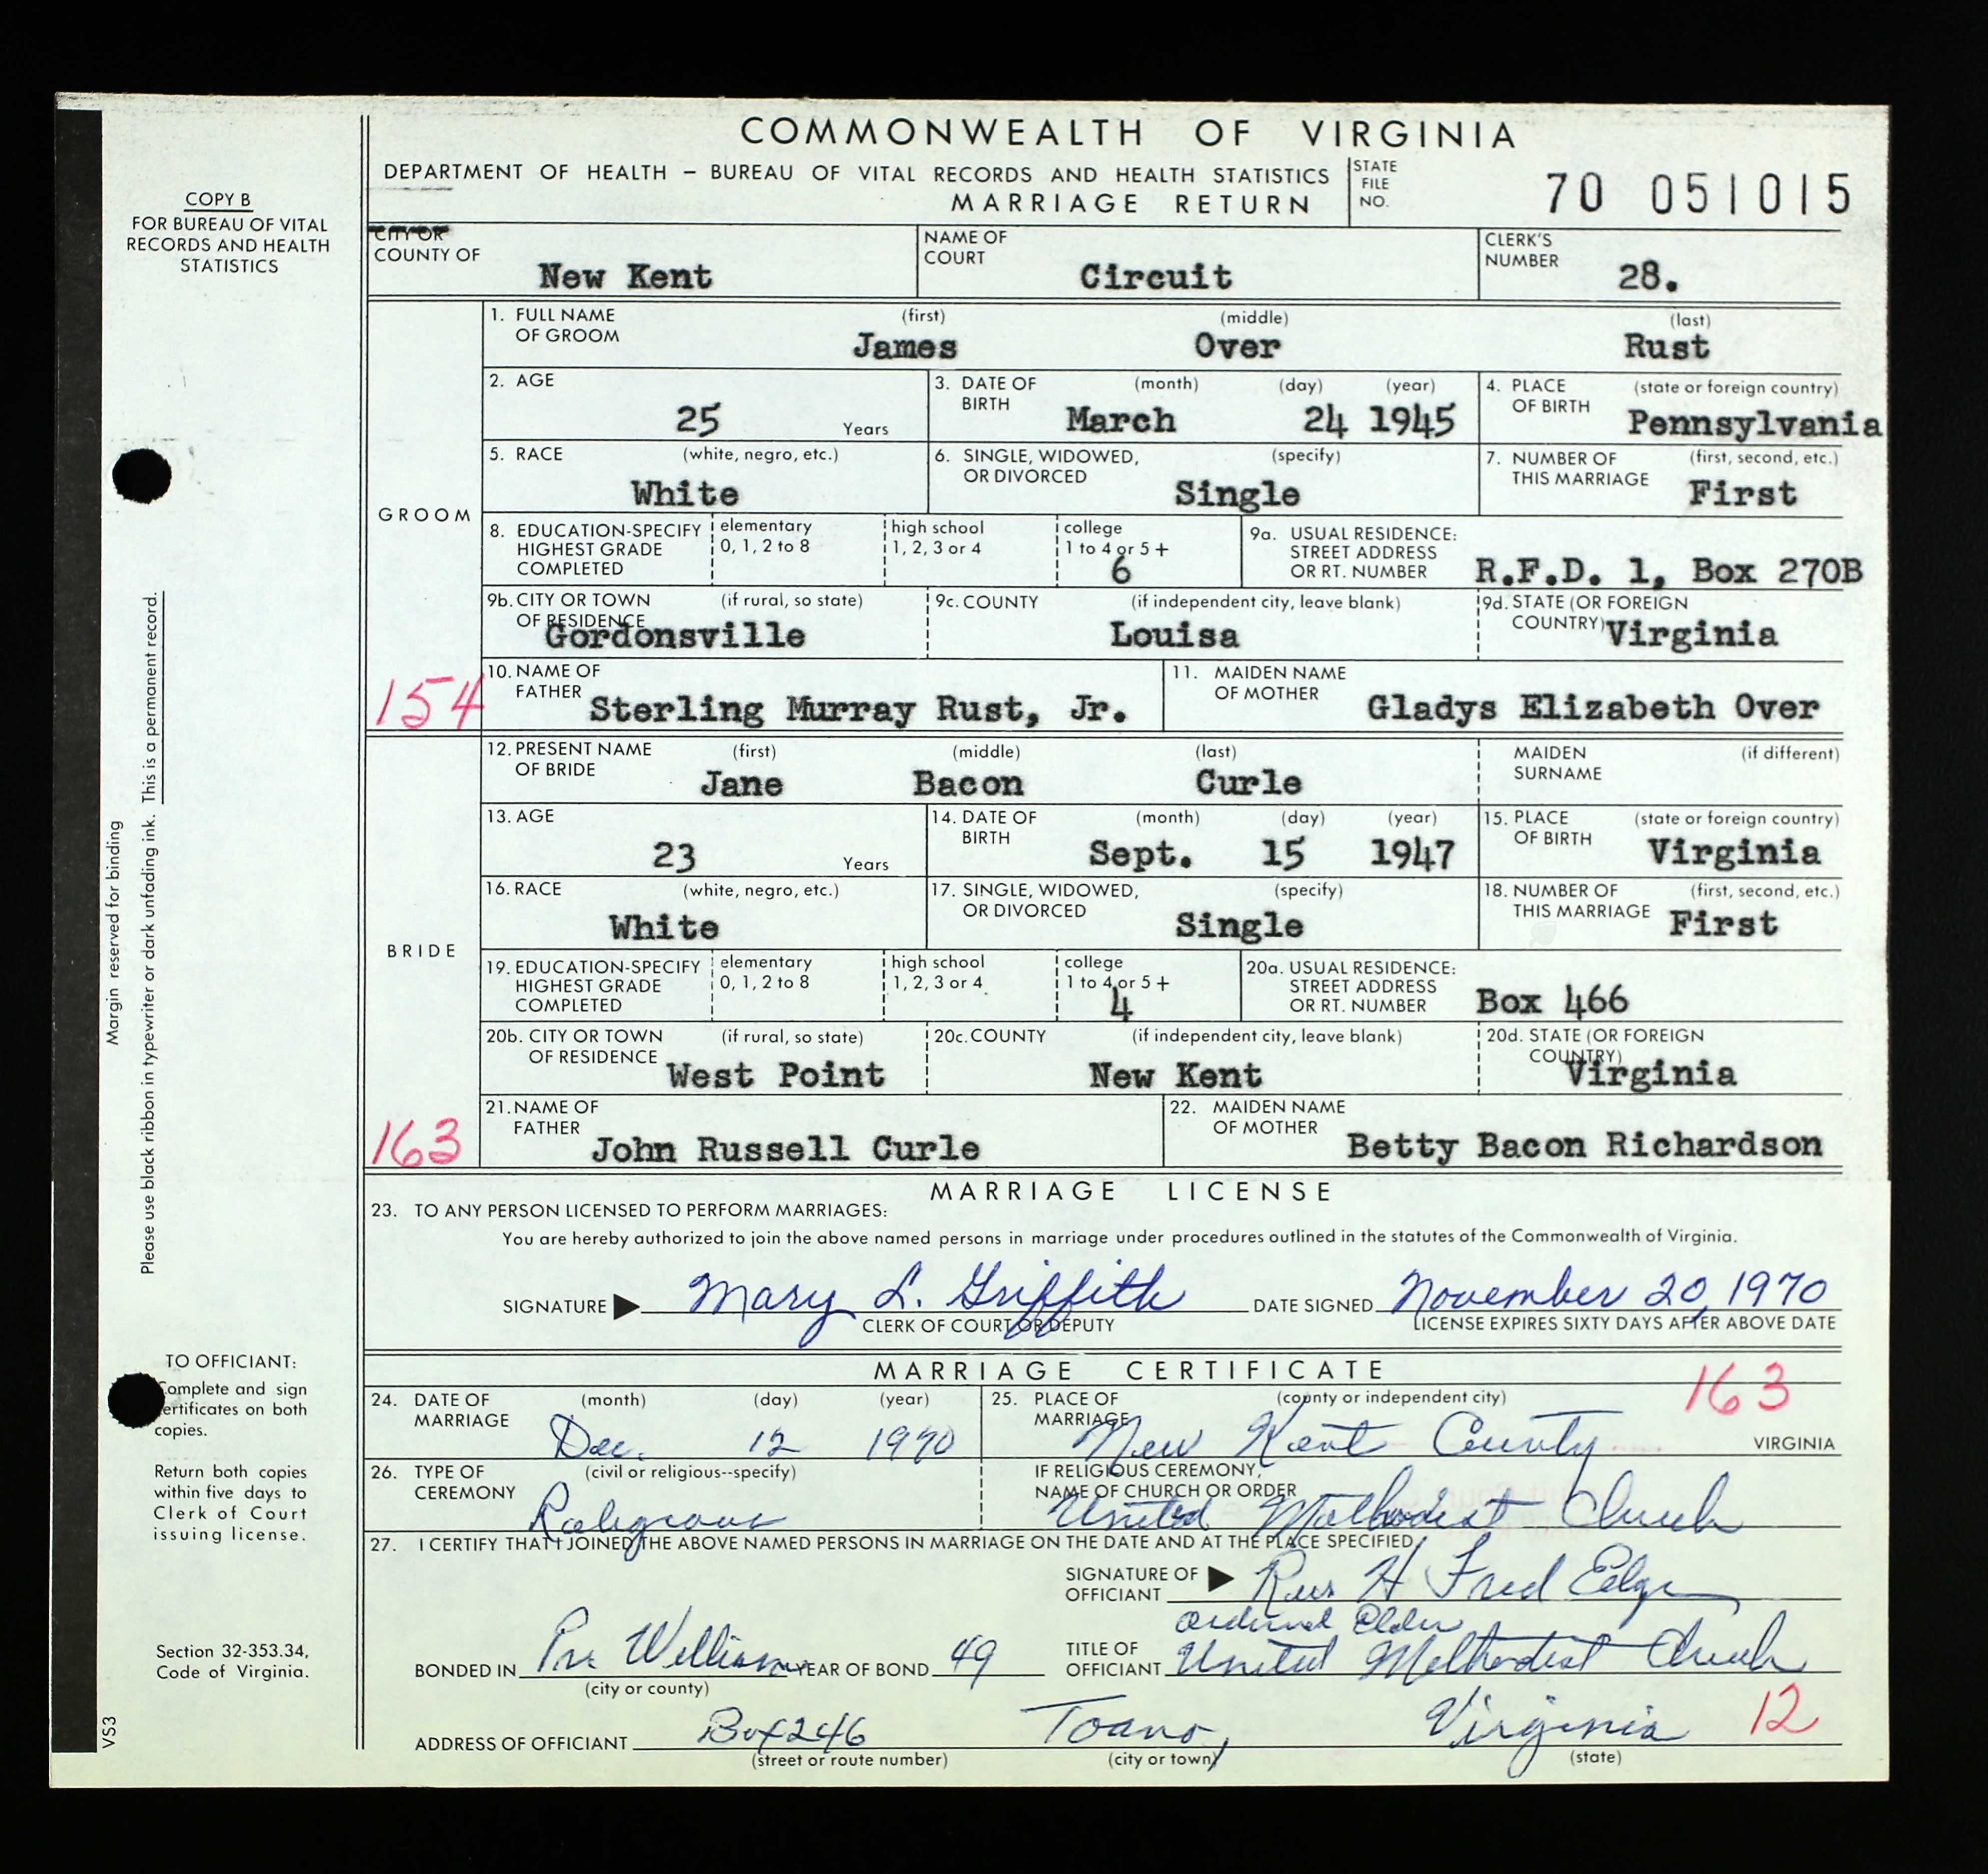 COMMONWEALTH OF VIRGINIA
DEPARTMENT OF HEALTH – BUREAU OF VITAL RECORDS AND HEALTH STATISTICS
MARRIAGE RETURN
STATE FILE NO. 70 051015
COPY B
FOR BUREAU OF VITAL
RECORDS AND HEALTH
STATISTICS
CITY OR
COUNTY OF New Kent
NAME OF COURT Circuit
CLERK'S NUMBER 28.
GROOM
1. FULL NAME OF GROOM (first) James (middle) Over (last) Rust
2. AGE 25 Years
3. DATE OF BIRTH (month) March (day) 24 (year) 1945
4. PLACE OF BIRTH (state or foreign country) Pennsylvania
5. RACE (white, negro, etc.) White
6. SINGLE, WIDOWED, OR DIVORCED (specify) Single
7. NUMBER OF THIS MARRIAGE (first, second, etc.) First
8. EDUCATION-SPECIFY HIGHEST GRADE COMPLETED elementary 0, 1, 2 to 8 high school 1, 2, 3 or 4 college 1 to 4 or 5 + 6
9a. USUAL RESIDENCE: STREET ADDRESS OR RT. NUMBER R.F.D. 1, Box 270B
9b. CITY OR TOWN OF RESIDENCE (if rural, so state) Gordonsville
9c. COUNTY (if independent city, leave blank) Louisa
9d. STATE (OR FOREIGN COUNTRY) Virginia
154
10. NAME OF FATHER Sterling Murray Rust, Jr.
11. MAIDEN NAME OF MOTHER Gladys Elizabeth Over
BRIDE
12. PRESENT NAME OF BRIDE (first) Jane (middle) Bacon (last) Curle
MAIDEN SURNAME (if different)
13. AGE 23 Years
14. DATE OF BIRTH (month) Sept. (day) 15 (year) 1947
15. PLACE OF BIRTH (state or foreign country) Virginia
16. RACE (white, negro, etc.) White
17. SINGLE, WIDOWED, OR DIVORCED (specify) Single
18. NUMBER OF THIS MARRIAGE (first, second, etc.) First
19. EDUCATION-SPECIFY HIGHEST GRADE COMPLETED elementary 0, 1, 2 to 8 high school 1, 2, 3 or 4 college 1 to 4 or 5 + 4
20a. USUAL RESIDENCE: STREET ADDRESS OR RT. NUMBER Box 466
20b. CITY OR TOWN OF RESIDENCE (if rural, so state) West Point
20c. COUNTY (if independent city, leave blank) New Kent
20d. STATE (OR FOREIGN COUNTRY) Virginia
163
21. NAME OF FATHER John Russell Curle
22. MAIDEN NAME OF MOTHER Betty Bacon Richardson
MARRIAGE LICENSE
23. TO ANY PERSON LICENSED TO PERFORM MARRIAGES:
You are hereby authorized to join the above named persons in marriage under procedures outlined in the statutes of the Commonwealth of Virginia.
SIGNATURE Mary L. Griffith DATE SIGNED November 20, 1970
CLERK OF COURT OR DEPUTY LICENSE EXPIRES SIXTY DAYS AFTER ABOVE DATE
MARRIAGE CERTIFICATE
163
24. DATE OF MARRIAGE (month) Dec. (day) 12 (year) 1970
25. PLACE OF MARRIAGE (county or independent city) New Kent County VIRGINIA
26. TYPE OF CEREMONY (civil or religious--specify) Religious
IF RELIGIOUS CEREMONY, NAME OF CHURCH OR ORDER United Methodist Church
27. I CERTIFY THAT I JOINED THE ABOVE NAMED PERSONS IN MARRIAGE ON THE DATE AND AT THE PLACE SPECIFIED
SIGNATURE OF OFFICIANT Rev. H Fred Edge
BONDED IN Pr. William YEAR OF BOND 49
(city or county)
TITLE OF OFFICIANT Ordained Elder
United Methodist Church
12
ADDRESS OF OFFICIANT Box 246 Toano, Virginia
(street or route number) (city or town) (state)
Margin reserved for binding
Please use black ribbon in typewriter or dark unfading ink. This is a permanent record.
TO OFFICIANT:
Complete and sign
certificates on both
copies.
Return both copies
within five days to
Clerk of Court
issuing license.
Section 32-353.34,
Code of Virginia.
VS3